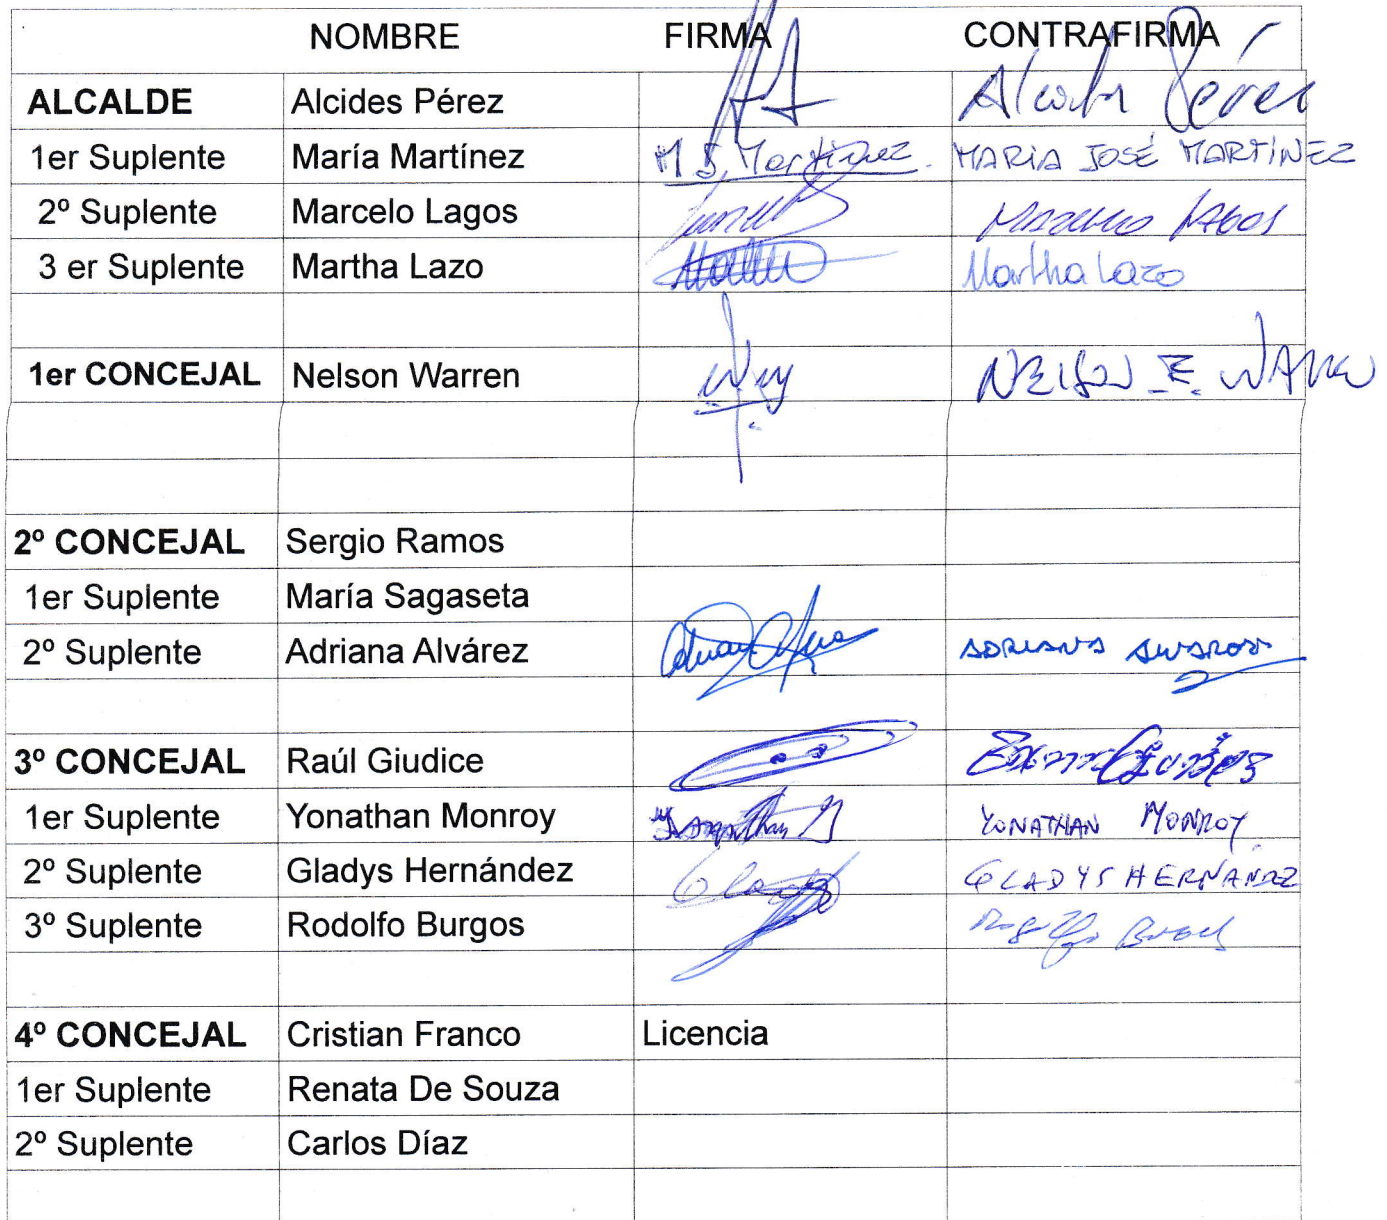 NOMBRE FIRMA CONTRAFIRMA
ALCALDE Alcides Pérez Pérez
1er Suplente María Martínez M J Martinez. MARIA JOSÉ MARTÍNEZ
2º Suplente Marcelo Lagos MARCELO LAGOS
3 er Suplente Martha Lazo Martha Lazo
1er CONCEJAL Nelson Warren NELSON E. WARREN
2º CONCEJAL Sergio Ramos
1er Suplente María Sagaseta
2º Suplente Adriana Alvárez ADRIANA ALVAROZ
3º CONCEJAL Raúl Giudice
1er Suplente Yonathan Monroy YONATHAN MONROY
2º Suplente Gladys Hernández GLADYS HERNANDEZ
3º Suplente Rodolfo Burgos
4º CONCEJAL Cristian Franco Licencia
1er Suplente Renata De Souza
2º Suplente Carlos Díaz